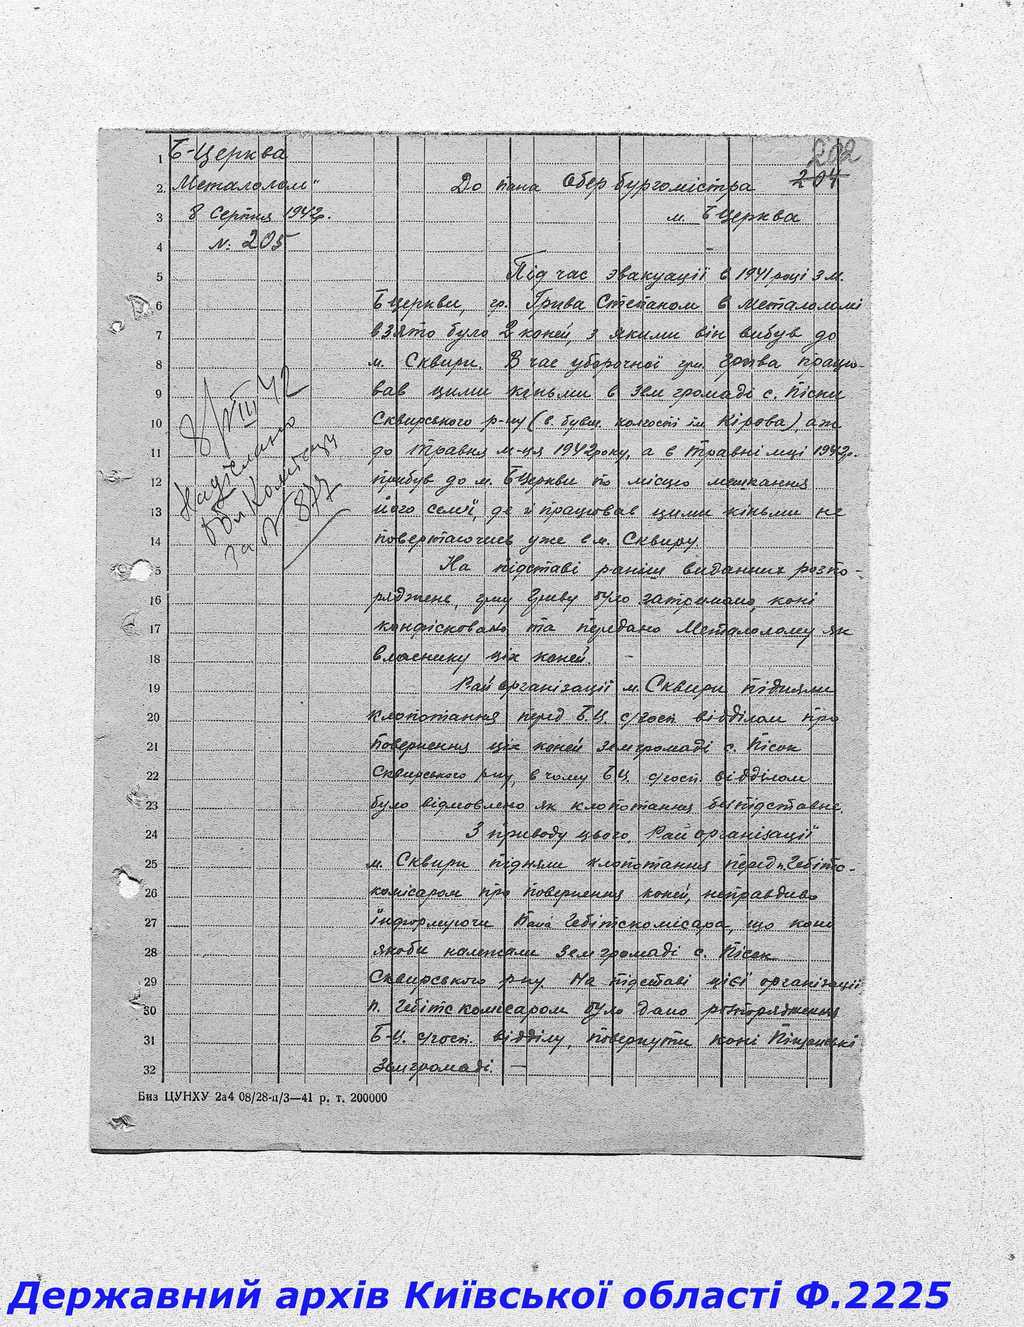 202
204
Б-Церква
"Металолом"
8 Серпня 1942р.
№ 205
До пана Обер бургомістра
м. Б Церква
Під час эвакуації в 1941 році з м.
Б Церкви, гр. Грива Степаном в металоломі
взято було 2 коней, з якими він вибув до
м. Сквири. В час уборочної грм. Грива працю-
вав цими кіньми в Зем громаді с. Піски
Сквирського р-ну (в. бувш. колгоспі ім Кірова), аж
до травня м-ця 1942 року, а в травні м-ці 1942р.
прибув до м. Б Церкви по місцю мешкання
його сем'ї, де й працював цими кіньми не
повертаючись уже в м. Сквиру.
На підставі раніш виданних розпо-
ряджень, гр-ну Гриву було затримано, коні
конфісковано та передано Металолому як
власнику ціх коней. –
Рай організації м. Сквири підняли
клопотання перед Б.Ц. с/госп. відділом про
повернення ціх коней Земгромаді с. Пісок
Сквирського р-ну, в чому Б.Ц. с/госп. відділом
було відмовлено як клопотання безпідставне.
З приводу цього, Рай організації
м. Сквири підняли клопотання перед п. Гебітс-
комісаром про повернення коней, неправдиво
інформуючи Пана Гебітскомісара, що коні
якоби належали Земгромаді с. Пісок
Сквирського р-ну. На підставі цієї організації
п. Гебітскомісаром було дано розпорядження
Б-Ц. с/госп. відділу, повернути коні Піщанській
Земгромаді. –
8/VIII 42
Надіслано
за № 877
1
2
3
4
5
6
7
8
9
10
11
12
13
14
5
16
17
18
19
20
21
22
23
24
25
26
27
28
29
30
31
32
Биз ЦУНХУ 2а4 08/28-п/3—41 р. т. 200000
Державний архів Київської області Ф.2225